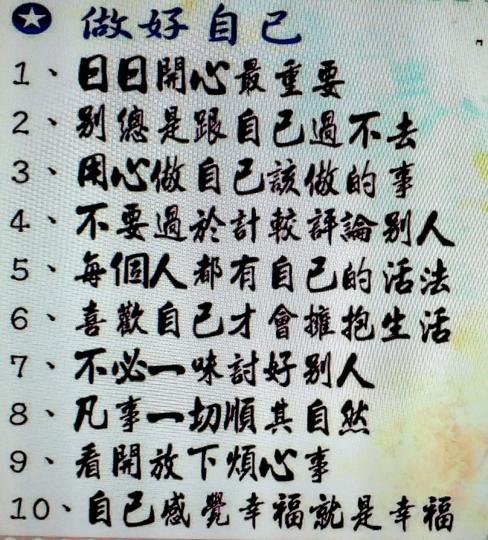 做好自己
1、日日開心最重要
2、別總是跟自己過不去
3、用心做自己該做的事
4、不要過於計較評論別人
5、每個人都有自己的活法
6、喜歡自己才會擁抱生活
7、不必一味討好別人
8、凡事一切順其自然
9、看開放下煩心事
10、自己感覺幸福就是幸福